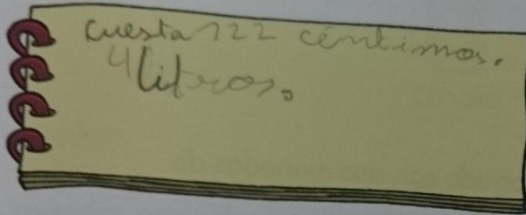 cuesta 122 céntimos.
4 litros.